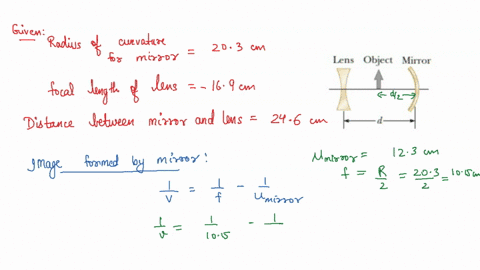 Given:
Radius of curvature
for mirror = 20.3 cm
focal length of lens = -16.9 cm
Distance between mirror and lens = 24.6 cm
Image formed by mirror:
1/v = 1/f - 1/u mirror
1/v = 1/10.15 - 1/
Lens Object Mirror
d/2
d
u mirror = 12.3 cm
f = R/2 = 20.3/2 = 10.15 cm